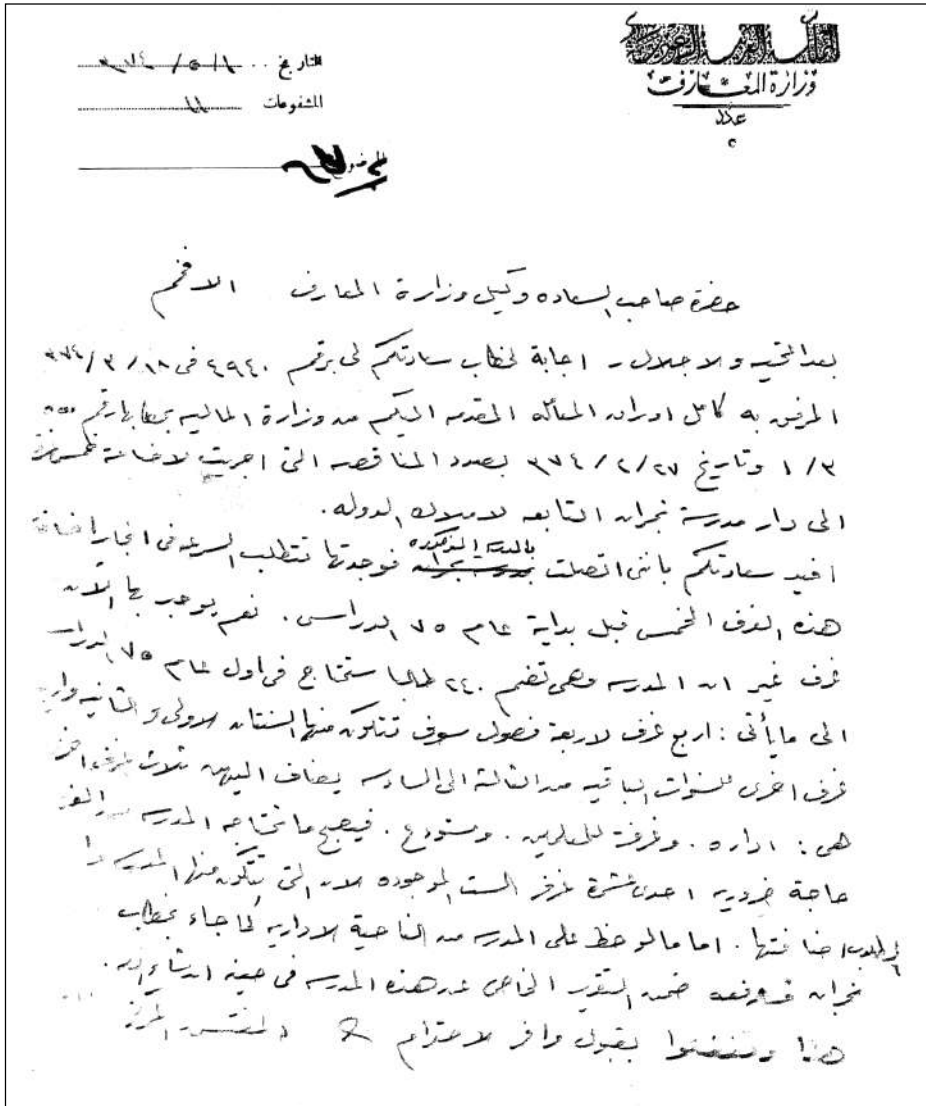 المملكة العربية السعودية
وزارة المعارف
عدد
التاريخ ١ / ٥ / ٣٧٤
المشفوعات ١١
الموضوع
حضرة صاحب السعاده وكيل وزارة المعارف الافخم
بعد التحيه والاجلال - اجابة لخطاب سعادتكم لى برقم ٤٩٤٠ فى ١٨ / ٣ / ٣٧٤
المرفق به كامل اوراق المعامله المقدمه اليكم من وزارة الماليه بخطابها رقم
٣ / ١ وتاريخ ٢٧ / ٢ / ٣٧٤ بصدد المناقصه التى اجريت لاضافة خمس غرف
الى دار مدرسة نجران التابعه لاملاك الدوله .
افيد سعادتكم باننى اتصلت بالمدرسه المذكوره فوجدتها تتطلب السرعه فى انجاز اضافة
هذه الغرف الخمس قبل بداية عام ٧٥ الدراسى . نعم يوجد بها الآن
غرف غير ان المدرسه وهى تضم ٢٤٠ طالبا ستحتاج فى اول عام ٧٥ الدراسى
الى مايأتى : اربع غرف لاربعة فصول سوف تتكون منها السنتان الاولى والثانيه واربع
غرف اخرى للسنوات الباقيه من الثالثة الى السادسه يضاف اليهن ثلاث غرف اخرى
هى : اداره . وغرفة للمعلمين . ومستودع . فيصبح ماتحتاجه المدرسه من الغرف
حاجة ضروريه احدى عشرة غرفة الست الموجوده الان التى تتكون منها المدرسه
المطلوب اضافتها . اما مالوحظ على المدرسه من الناحية الاداريه كما جاء بخطاب
نجران ضمن التقرير الخاص عن هذه المدرسه فى حينه ان شاء الله .
هذا وتفضلوا بقبول وافر الاحترام